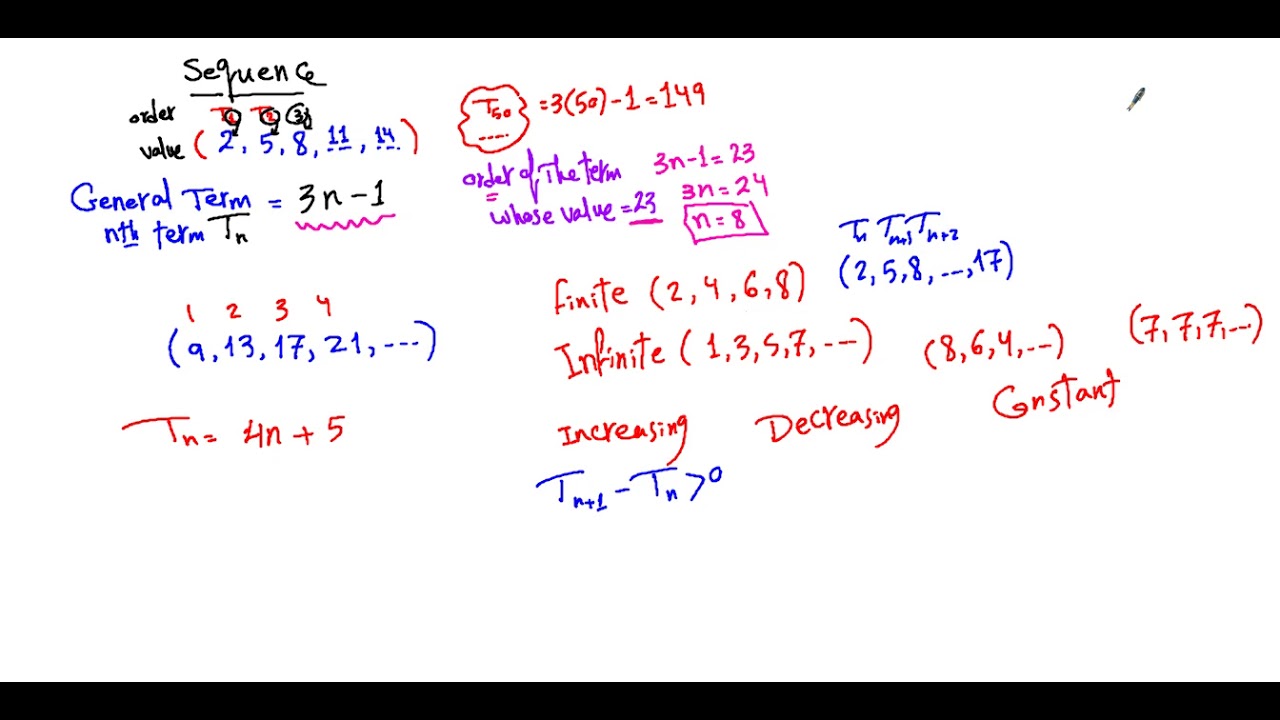 Sequence
order T1 T2 3
value (2, 5, 8, 11, 14)
General Term = 3n-1
nth term Tn
T50 = 3(50)-1=149
order of The term 3n-1=23
whose value=23 3n=24
n=8
Tn Tn+1 Tn+2
(2,5,8,...,17)
1 2 3 4
(9,13,17,21,...)
Tn= 4n+5
finite (2,4,6,8)
Infinite (1,3,5,7,...) (8,6,4,...) (7,7,7,...)
Increasing Decreasing Constant
Tn+1-Tn>0